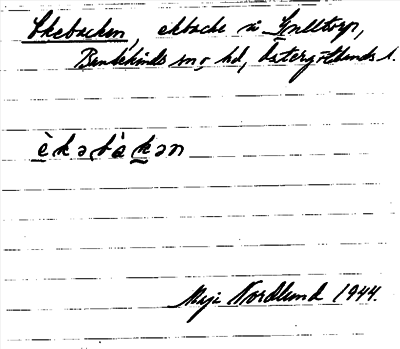 Ekebacken, ekbacke vi Smlltorp,
Bankekinds sn o hd, Östergötlands l.
èkəbàkən
Maji Nordlund 1944.